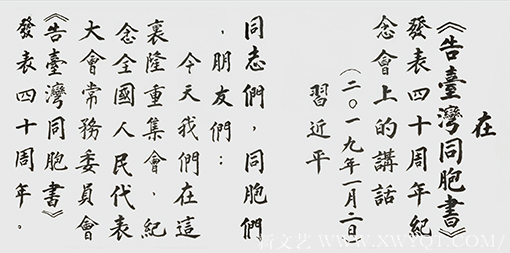 在
《告臺灣同胞書》
發表四十周年紀
念會上的講話
（二〇一九年一月二日）
習近平
同志們，同胞們
，朋友們：
今天我們在這
裏隆重集會，紀
念全國人民代表
大會常務委員會
《告臺灣同胞書》
發表四十周年。
新文艺 WWW.XWYQT.COM/